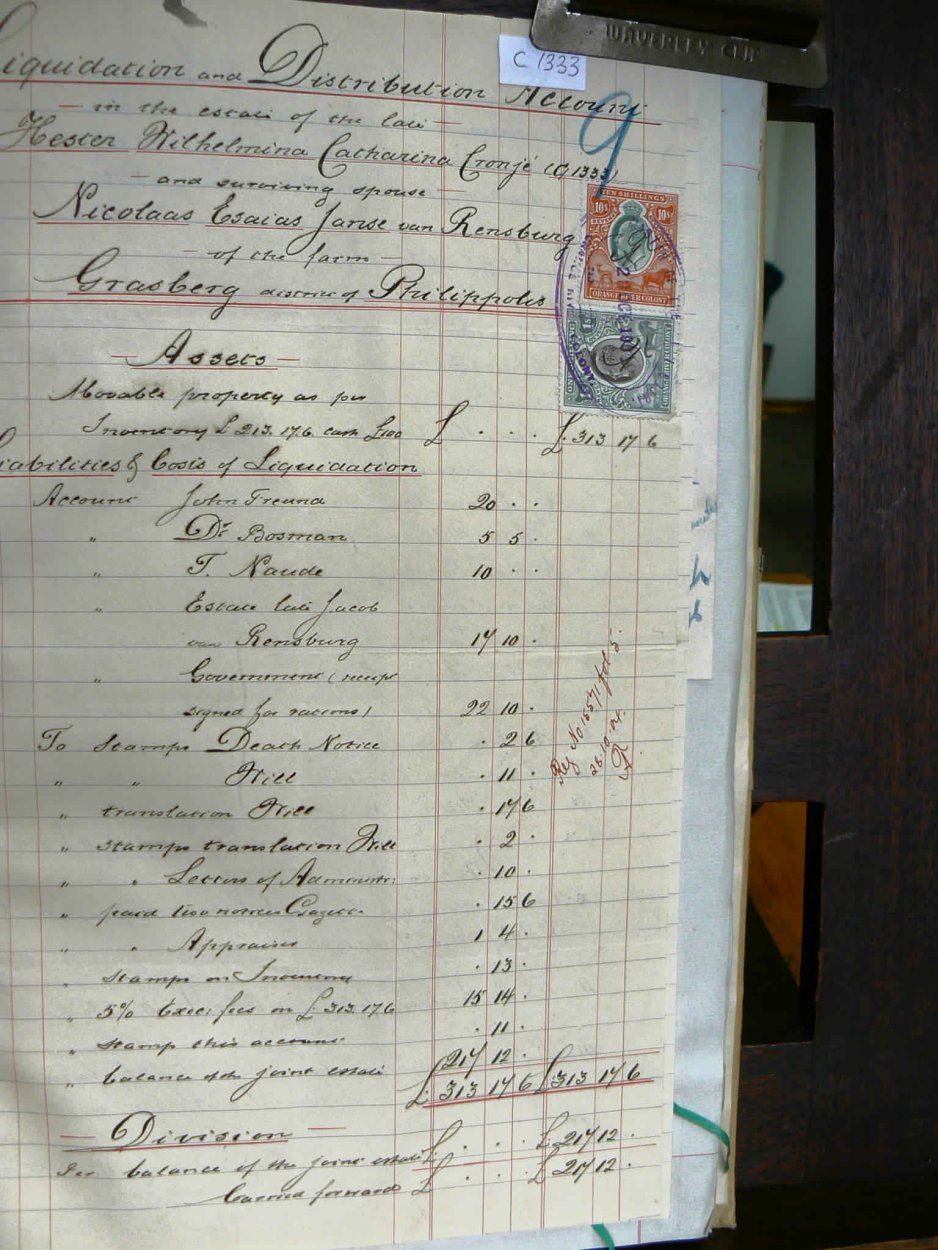 WAVERLEY CLIP
C 1333
Liquidation and Distribution Account
9
— in the estate of the late —
Hester Wilhelmina Catharina Cronjé (C1333)
— and surviving spouse —
Nicolaas Esaias Janse van Rensburg
— of the farm —
Grasberg district of Philippolis
TEN SHILLINGS
10s 10s
ORANGE RIVER COLONY
— Assets —
Movable property as per
Inventory £ 213.17.6. cash £100 £ . . . £ 313 17 6
Liabilities & Costs of Liquidation
Account John Freund 20 . .
" Dr Bosman 5 5 .
" T. Naude 10 . .
" Estate late Jacob
van Rensburg 17 10 .
" Government (receipt
signed for rations) 22 10 .
To Stamps Death Notice . 2 6
" " Will . 11 .
" translation Will . 17 6
" stamps translation Will . 2 .
" " Letters of Administr: . 10 .
" paid two notices Gazette . 15 6
" " Appraiser 1 4 .
" Stamps on Inventory . 13 .
" 5% Exec: fees on £ 313.17.6 15 14 .
" stamp this account . 11 .
" balance of the joint estate 217 12 .
£ 313 17 6 £ 313 17 6
— Division —
Per balance of the joint estate £ . . . £ 217 12 .
Carried forward £ . . . £ 217 12 .